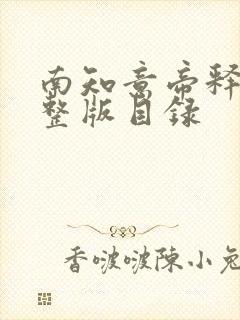 南知意帝释
整版目録
香啵啵陳小兔